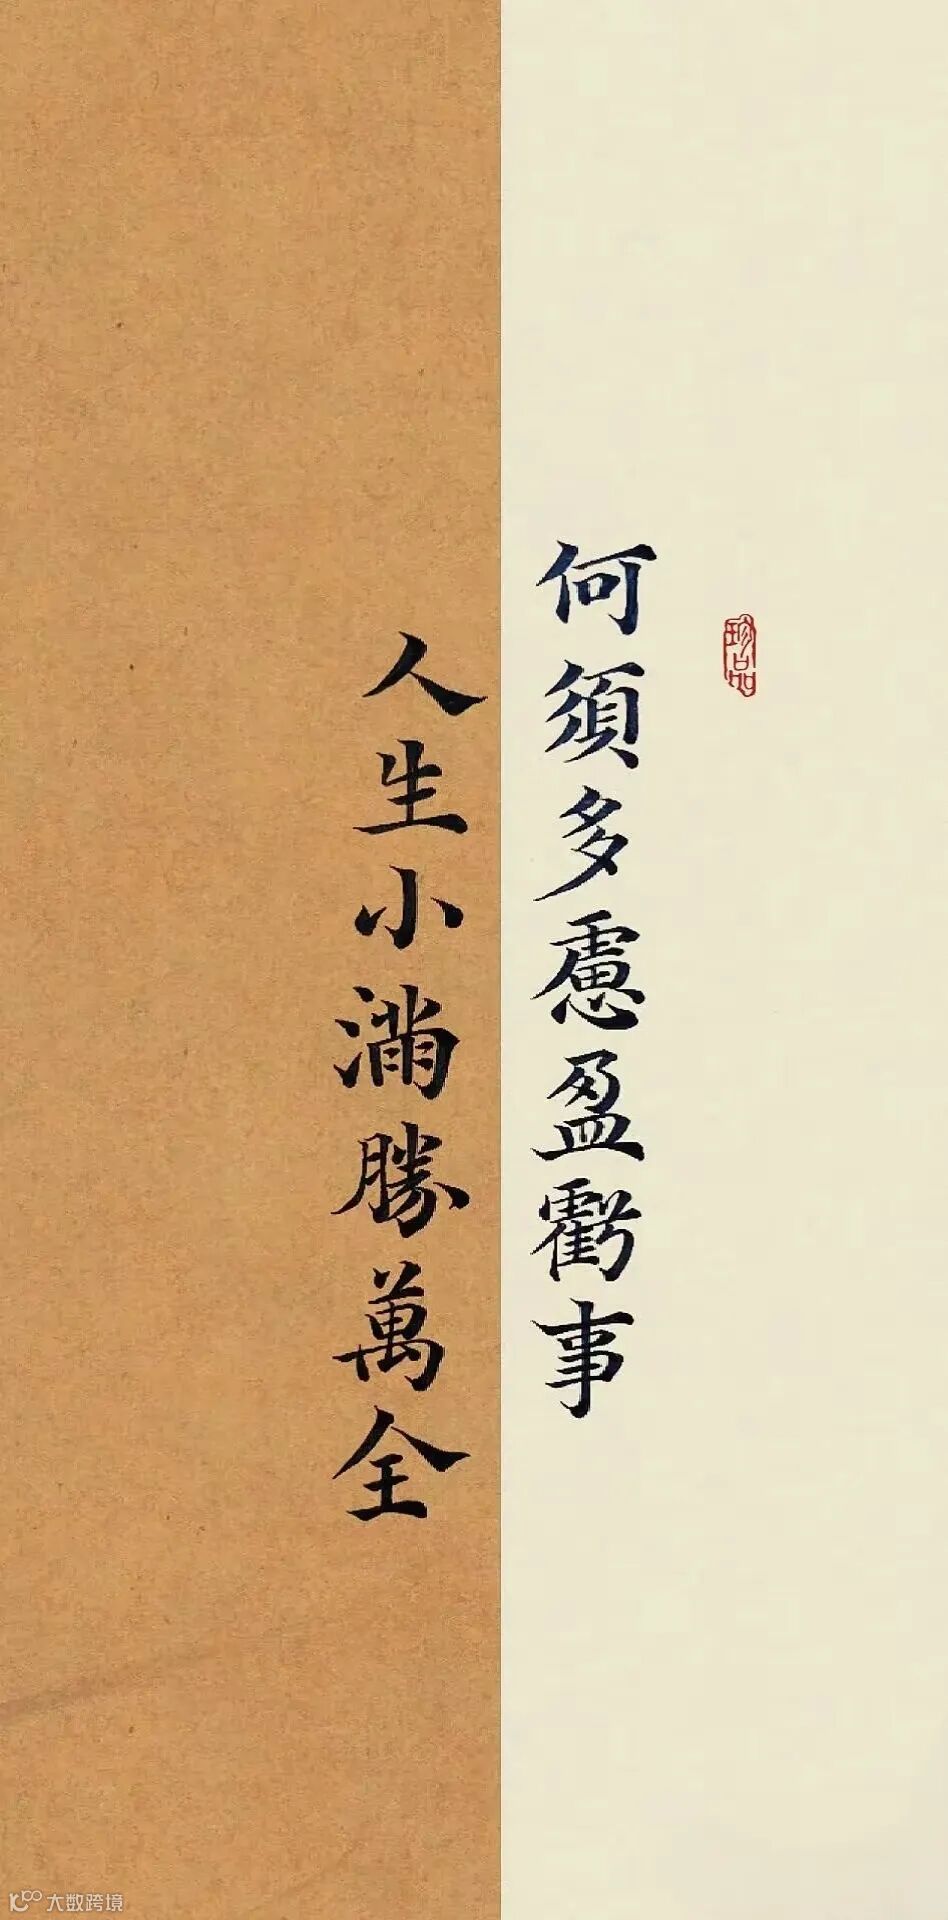 何須多慮盈虧事
人生小滿勝萬全
珍品
大数跨境